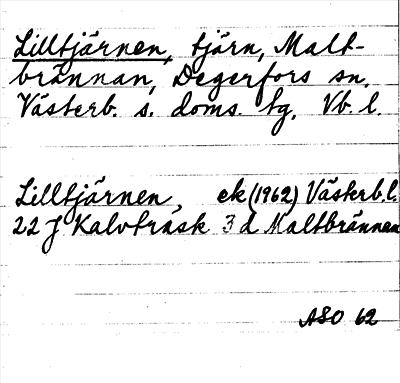 Lilltjärnen, tjärn, Malt-
brännan, Degerfors sn,
Västerb. s. doms. tg, Vb. l.
Lilltjärnen, ek (1962) Västerb. l.
22 J Kalvträsk 3 d Maltbrännan
ASO 62